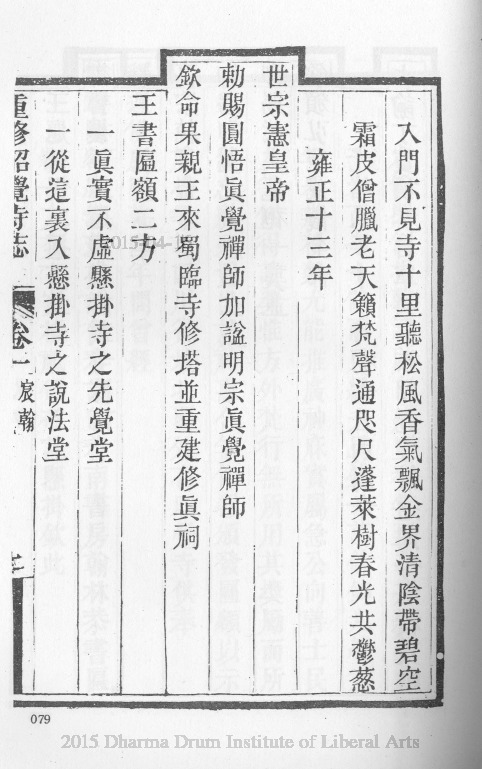 入門不見寺十里聽松風香氣飄金界清陰帶碧空
霜皮僧臘老天籟梵聲通咫尺蓬萊樹春光共鬱葱
雍正十三年
世宗憲皇帝
勅賜圓悟眞覺禪師加謚明宗眞覺禪師
欽命果親王來蜀臨寺修塔並重建修眞祠
王書匾額二方
一眞實不虛懸掛寺之先覺堂
一從這裏入懸掛寺之說法堂
重修昭覺寺誌 卷一 宸翰
079
2015 Dharma Drum Institute of Liberal Arts